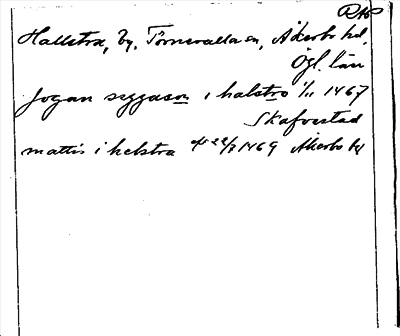 RAO
Hallstra, by, Törnevalla sn, Åkerbo hd,
Ögl. län
Jogan syggason i halstro 1/11 1467
Skafvestad
mattis i helstra 22/7 1469 Åkerbo hd